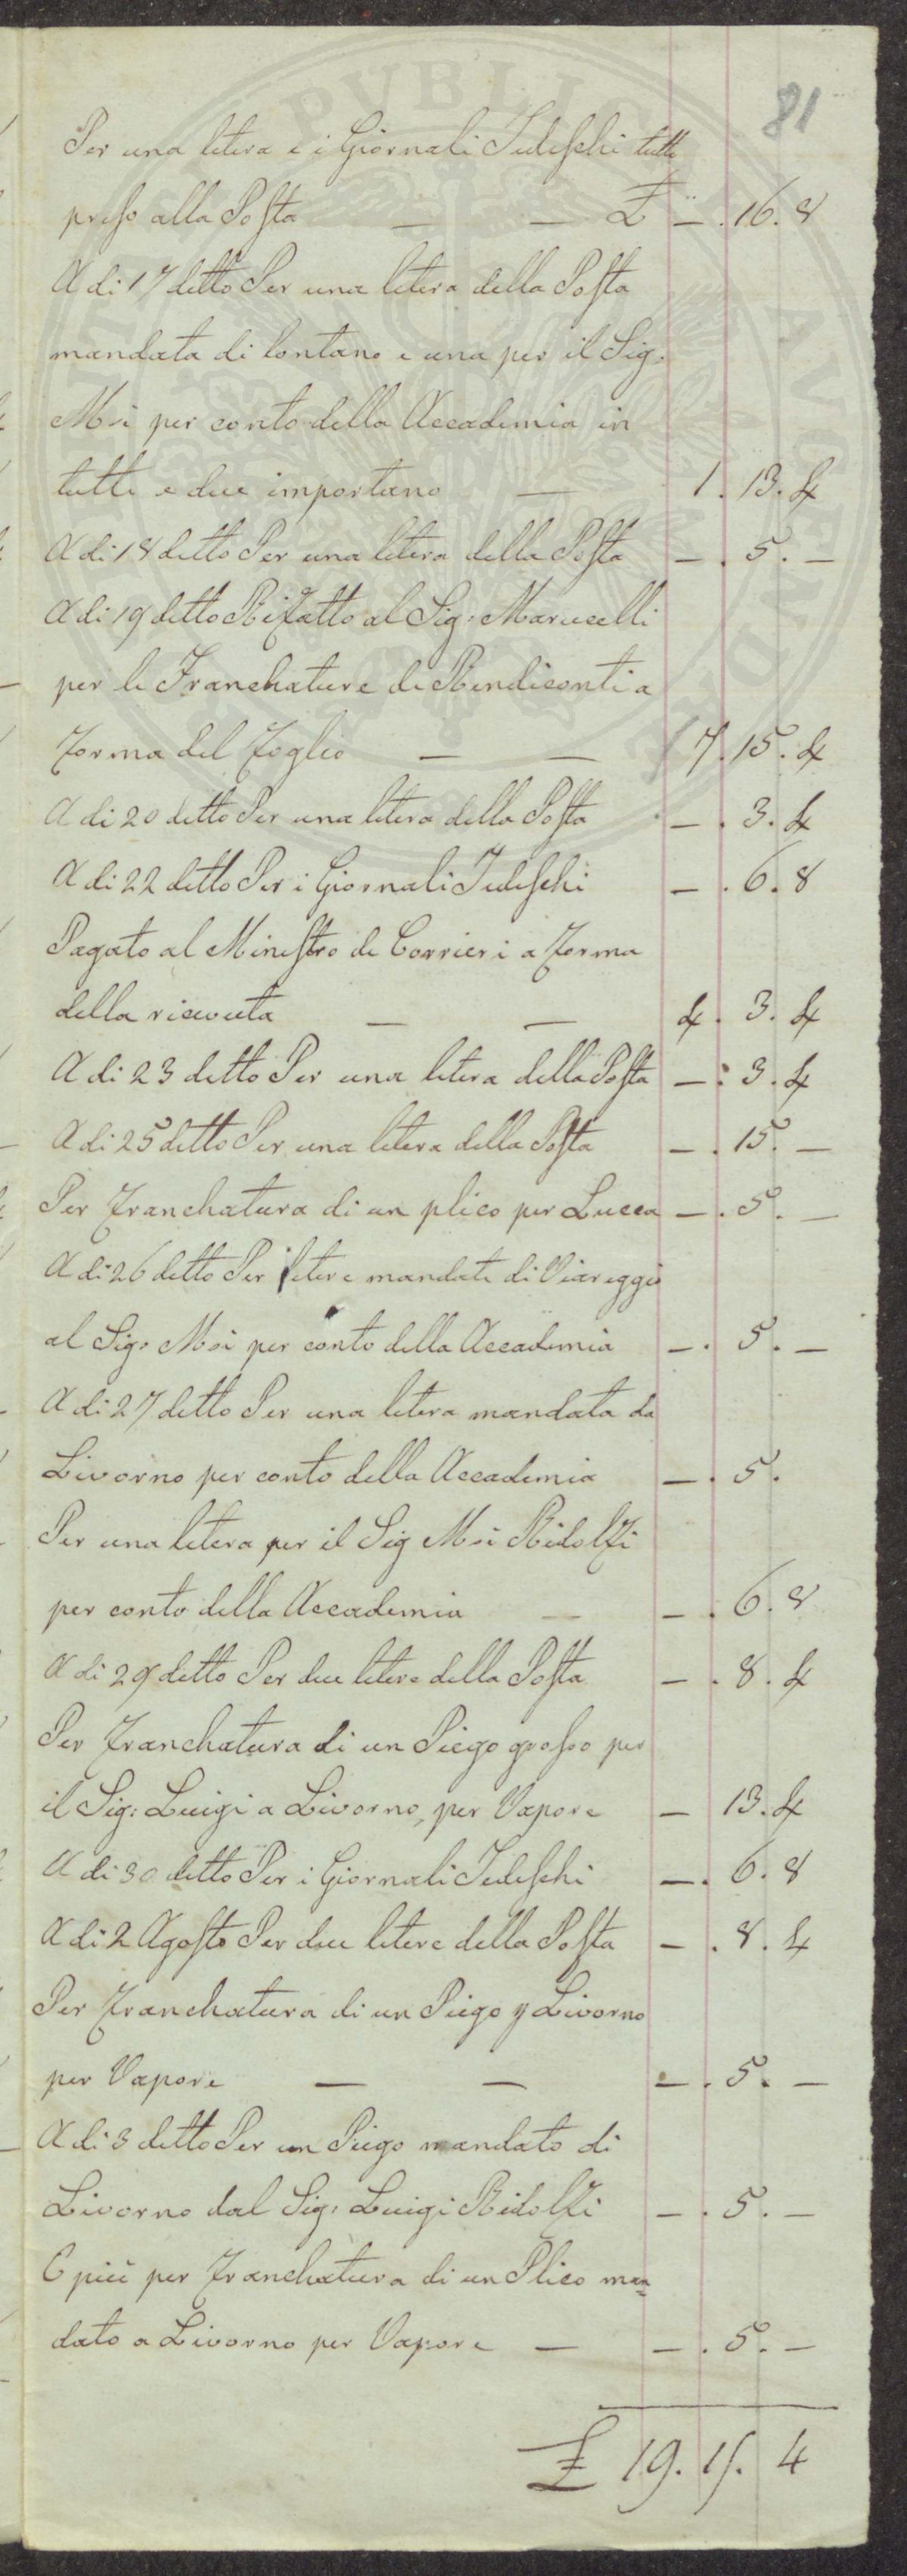 81
Per una letera e i Giornali Tedeschi tutto
preso alla Posta — — £ — . 16. 8
A di 17 detto Per una letera della Posta
mandata di lontano e una per il Sig:
Msi per conto della Accademia in
tutte e due importano — 1. 13. 4
A di 18 detto Per una letera della Posta — . 5. —
A di 19 detto Rifatto al Sig: Marucelli
per le Franchature di Rendiconti a
forma del foglio — — 7. 15. 4
A di 20 detto Per una letera della Posta — . 3. 4
A di 22 detto Per i Giornali Tedeschi — . 6. 8
Pagato al Ministro de Corrieri a forma
della ricevuta — — 4. 3. 4
A di 23 detto Per una letera della Posta — : 3. 4
A di 25 detto Per una letera della Posta — . 15. —
Per franchatura di un plico per Lucca — . 5. —
A di 26 detto Per letere mandate di Viareggio
al Sig: Msi per conto della Accademia — . 5. —
A di 27 detto Per una letera mandata da
Livorno per conto della Accademia — . 5.
Per una letera per il Sig Msi Ridolfi
per conto della Accademia — — . 6. 8
A di 29 detto Per due letere della Posta — . 8. 4
Per franchatura di un Piego grosso per
il Sig: Luigi a Livorno, per Vapore — 13. 4
A di 30 detto Per i Giornali Tedeschi — . 6. 8
A di 2 Agosto Per due letere della Posta — . 8. 4
Per franchatura di un Piego p Livorno
per Vapore — — — . 5. —
A di 3 detto Per un Piego mandato di
Livorno dal Sig: Luigi Ridolfi — . 5. —
E più per franchatura di un Plico man
dato a Livorno per Vapore — — . 5. —
£ 19. 15. 4